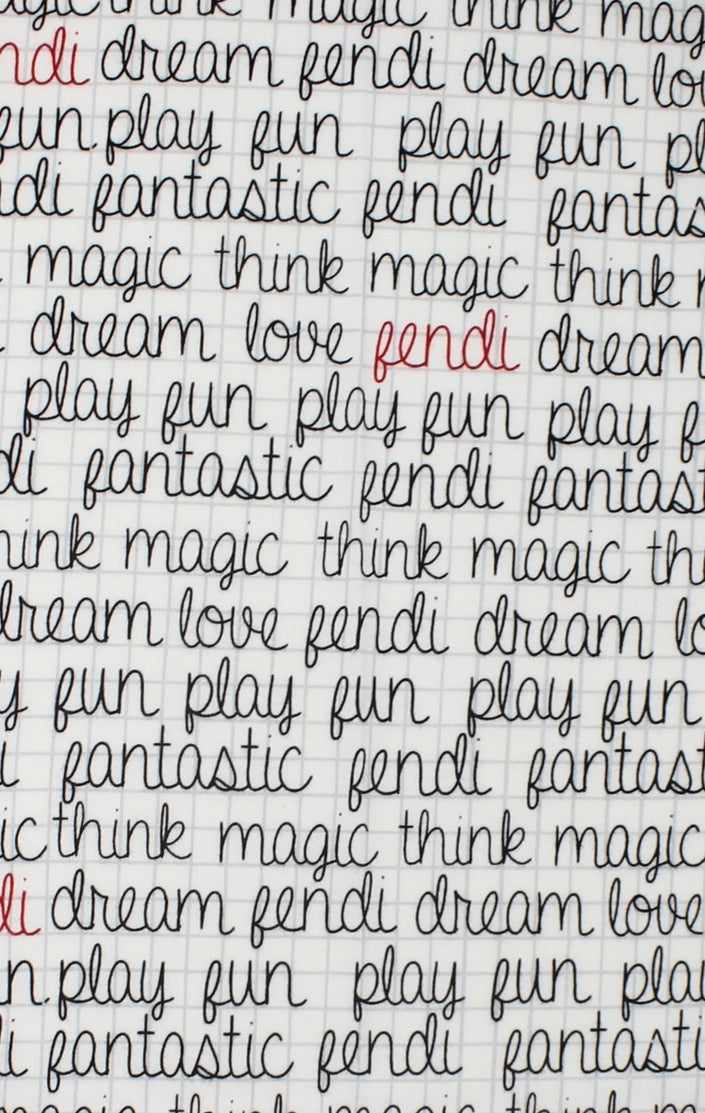 magic think magic think mag
ndi dream fendi dream lo
fun. play fun play fun pl
di fantastic fendi fantas
magic think magic think
dream love fendi dream
play fun play fun play f
di fantastic fendi fantast
hink magic think magic th
dream love fendi dream lo
y fun play fun play fun
i fantastic fendi fantast
ic think magic think magic
di dream fendi dream love
n. play fun play fun play
i fantastic fendi fantasti
magic think magic think m